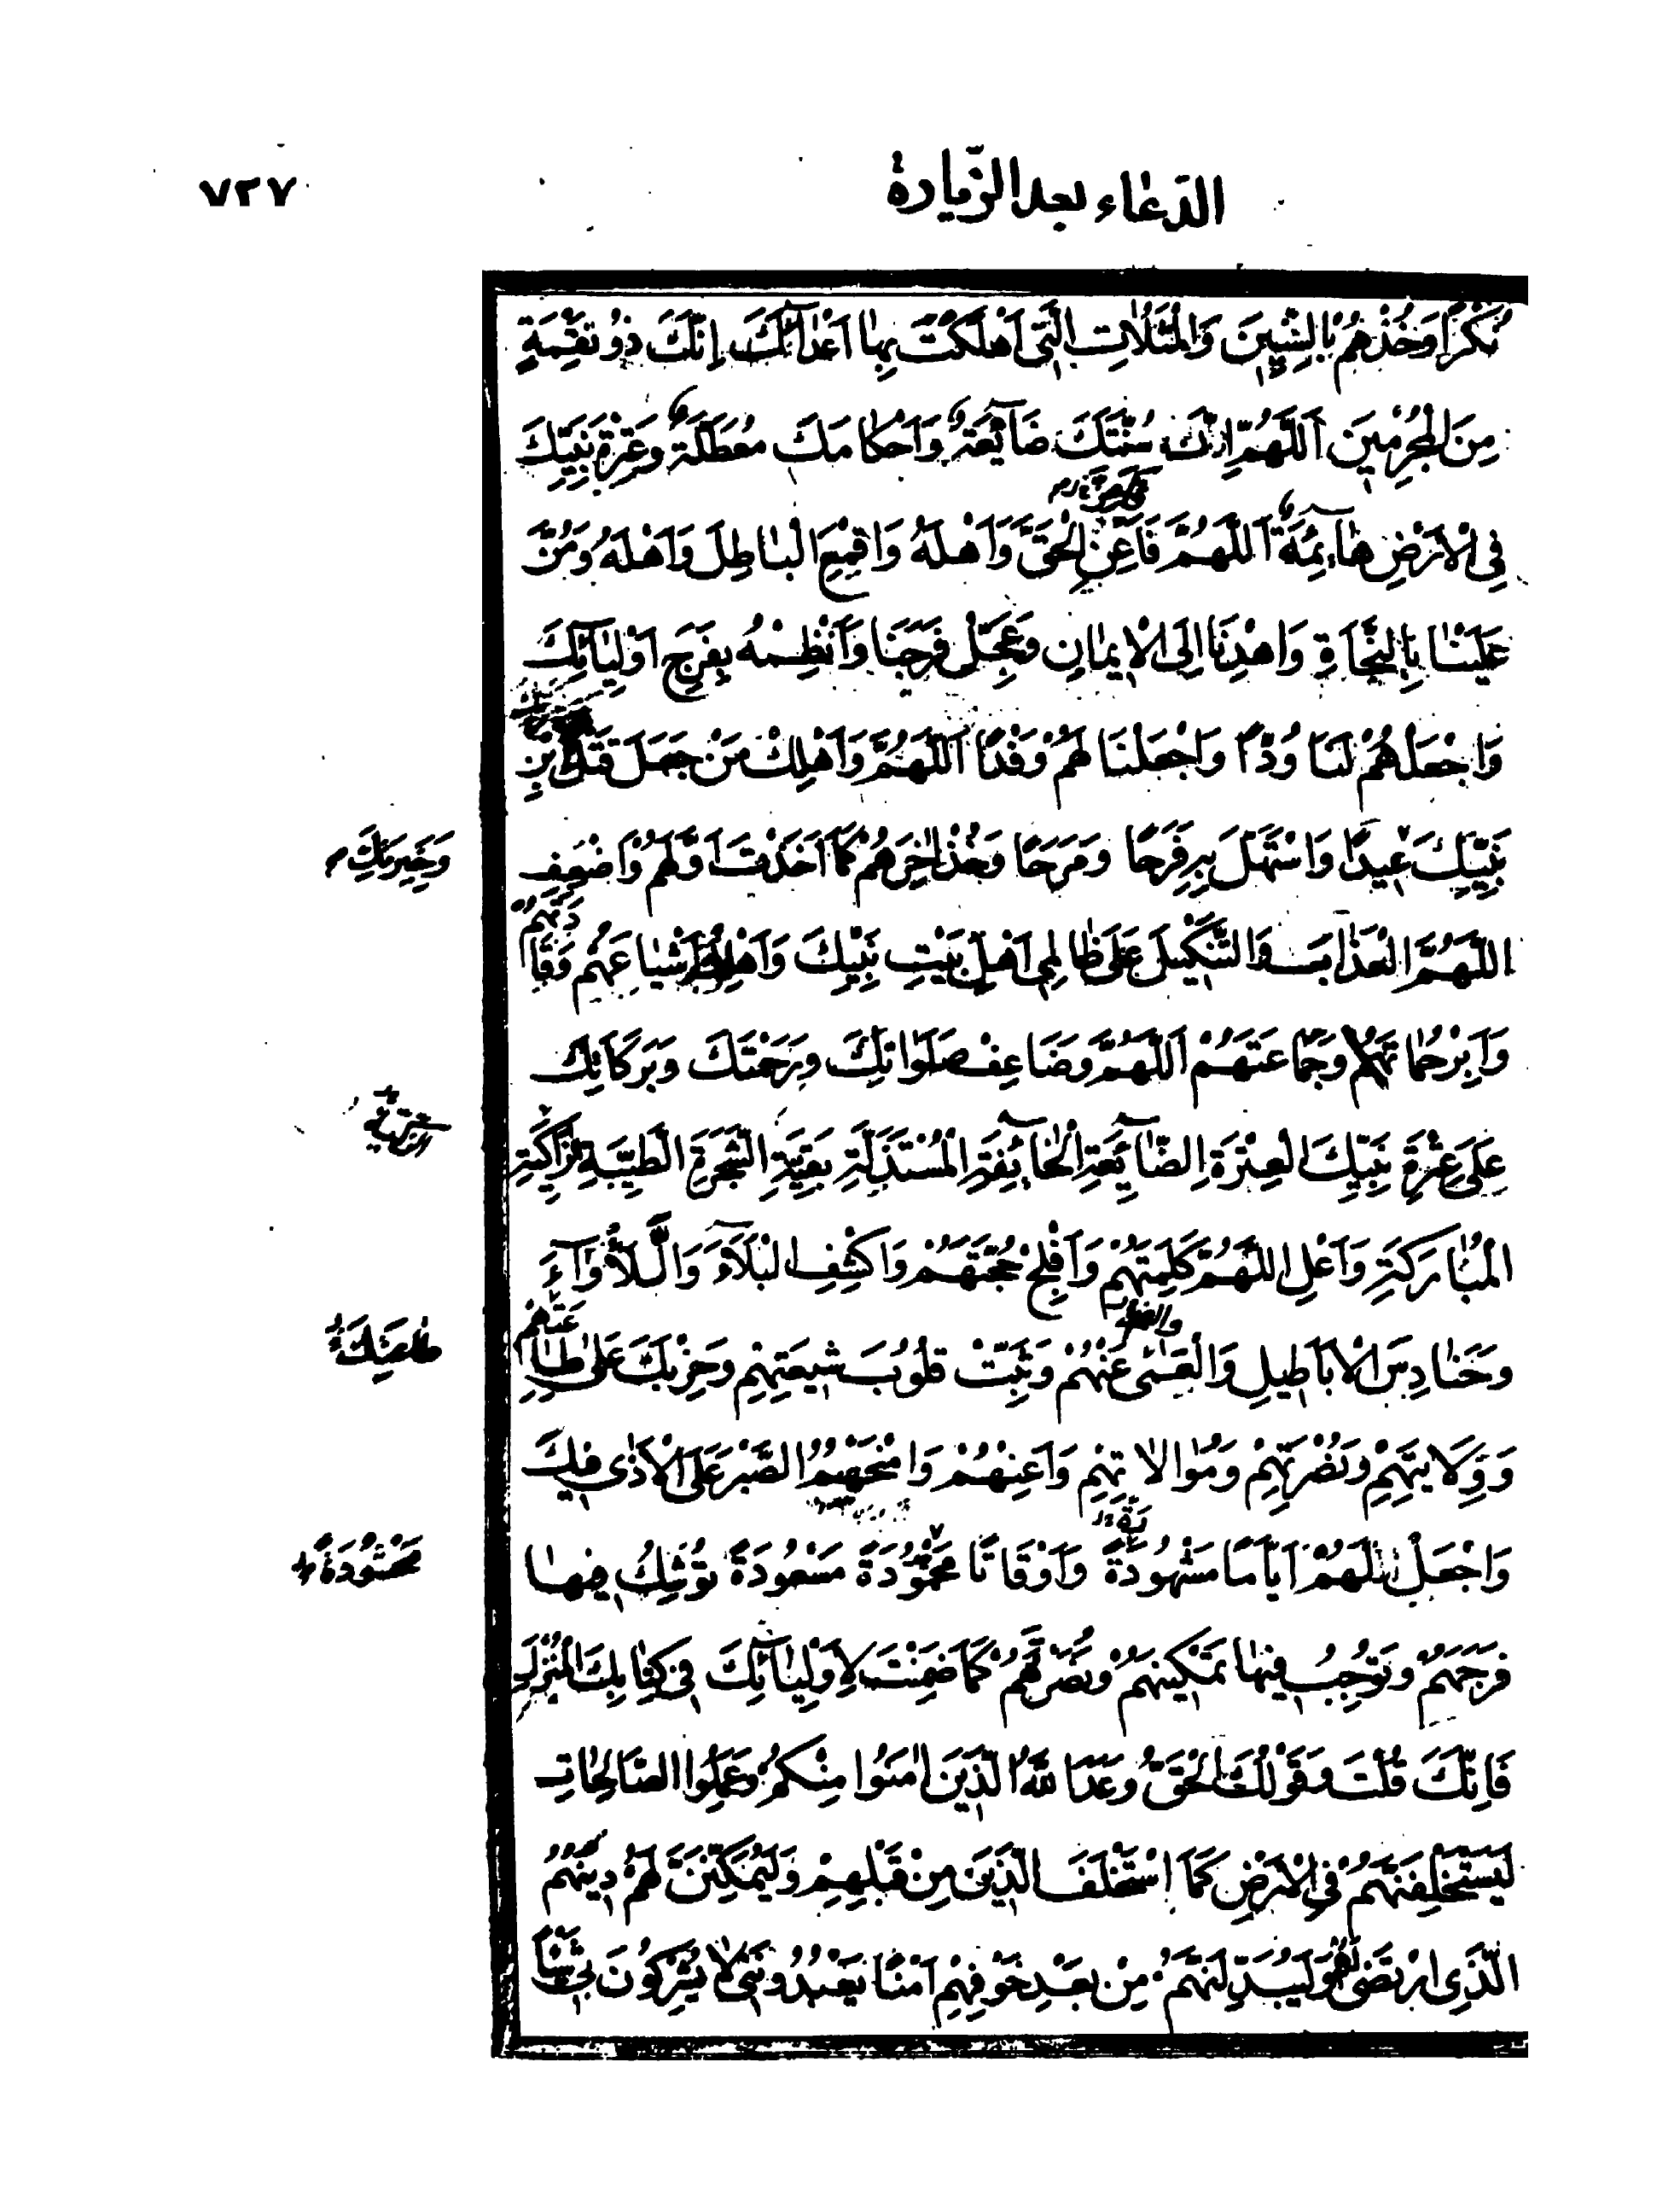 الدّعاء بعد الزّيارة
٧٢٧
نُكْرًا وَخُذْهُمْ بِالسِّنِينَ وَالْمَثُلاٰتِ الَّتِي اَهْلَكْتَ بِهٰا اَعْدٰآئَكَ اِنَّكَ ذُو نَقِمَةٍ
مِنَ الْمُجْرِمِينَ اَللّٰهُمَّ اِنَّ سُنَّتَكَ ضٰآئِعَةٌ وَاَحْكٰامَكَ مُعَطَّلَةٌ وَعِتْرَةَ نَبِيِّكَ
فِي الْاَرْضِ هٰآئِمَةٌ اَللّٰهُمَّ فَاَعِنِ الْحَقَّ وَاَهْلَهُ وَاقْمَعِ الْبٰاطِلَ وَاَهْلَهُ وَمُنَّ
عَلَيْنٰا بِالنَّجٰاةِ وَاهْدِنَا اِلَى الْاِيمٰانِ وَعَجِّلْ فَرَجَنَا وَانْظِمْهُ بِفَرَجِ اَوْلِيٰآئِكَ
وَاجْعَلْهُمْ لَنٰا وُدًّا وَاجْعَلْنَا لَهُمْ وَفْدًا اَللّٰهُمَّ وَاَهْلِكْ مَنْ جَعَلَ قَتْلَ ابْنِ
نَبِيِّكَ عِيدًا وَاسْتَهَلَّ بِهِ فَرَحًا وَمَرَحًا وَخُذْ اٰخِرَهُمْ كَمٰا اَخَذْتَ اَوَّلَهُمْ وَاَضْعِفِ
وَخِيَرَتِكَ
اللّٰهُمَّ الْعَذٰابَ وَالتَّنْكِيلَ عَلَى ظٰالِمِي اَهْلِ بَيْتِ نَبِيِّكَ وَاَهْلِكْ اَشْيٰاعَهُمْ وَقٰا
دَتَهُمْ
وَاَبِرْ حُمٰاتَهُمْ وَجَمٰاعَتَهُمْ اَللّٰهُمَّ وَضَاعِفْ صَلَوٰاتِكَ وَرَحْمَتَكَ وَبَرَكَاتِكَ
عَلَى عِتْرَةِ نَبِيِّكَ الْعِتْرَةِ الضّٰآئِعَةِ الْخٰآئِفَةِ الْمُسْتَذَلَّةِ بَقِيَّةِ الشَّجَرَةِ الطَّيِّبَةِ الزّٰاكِيَةِ
الْمُبٰارَكَةِ وَاَعْلِ اللّٰهُمَّ كَلِمَتَهُمْ وَاَفْلِجْ حُجَّتَهُمْ وَاكْشِفِ الْبَلَآءَ وَاللَّأْوٰآءَ
وَحَنٰادِسَ الْاَبٰاطِيلِ وَالْعَمٰى عَنْهُمْ وَثَبِّتْ قُلُوبَ شِيعَتِهِمْ وَحِزْبِكَ عَلٰى
عَتِهِمْ
طٰاعَتِكَ
وَوَلَايَتِهِمْ وَنُصْرَتِهِمْ وَمُوٰالاٰتِهِمْ وَاَعِنْهُمْ وَامْنَحْهُمُ الصَّبْرَ عَلَى الْاَذٰى فِيكَ
وَاجْعَلْ لَهُمْ اَيّٰامًا مَشْهُودَةً وَاَوْقَاتًا مَحْمُودَةً مَسْعُودَةً تُوشِكُ فِيهٰا
مَحْشُودَةً
فَرَجَهُمْ وَتُوجِبُ فِيهٰا تَمْكِينَهُمْ وَنَصْرَهُمْ كَمٰا ضَمِنْتَ لِاَوْلِيٰآئِكَ فِي كِتٰابِكَ الْمُنْزَلِ
فَاِنَّكَ قُلْتَ وَقَوْلُكَ الْحَقُّ وَعَدَ اللّٰهُ الَّذِينَ اٰمَنُوا مِنْكُمْ وَعَمِلُوا الصّٰالِحٰاتِ
لَيَسْتَخْلِفَنَّهُمْ فِي الْاَرْضِ كَمَا اسْتَخْلَفَ الَّذِينَ مِنْ قَبْلِهِمْ وَلَيُمَكِّنَنَّ لَهُمْ دِينَهُمُ
الَّذِي ارْتَضٰى لَهُمْ وَلَيُبَدِّلَنَّهُمْ مِنْ بَعْدِ خَوْفِهِمْ اَمْنًا يَعْبُدُونَنِي لاٰ يُشْرِكُونَ بِي شَيْئًا